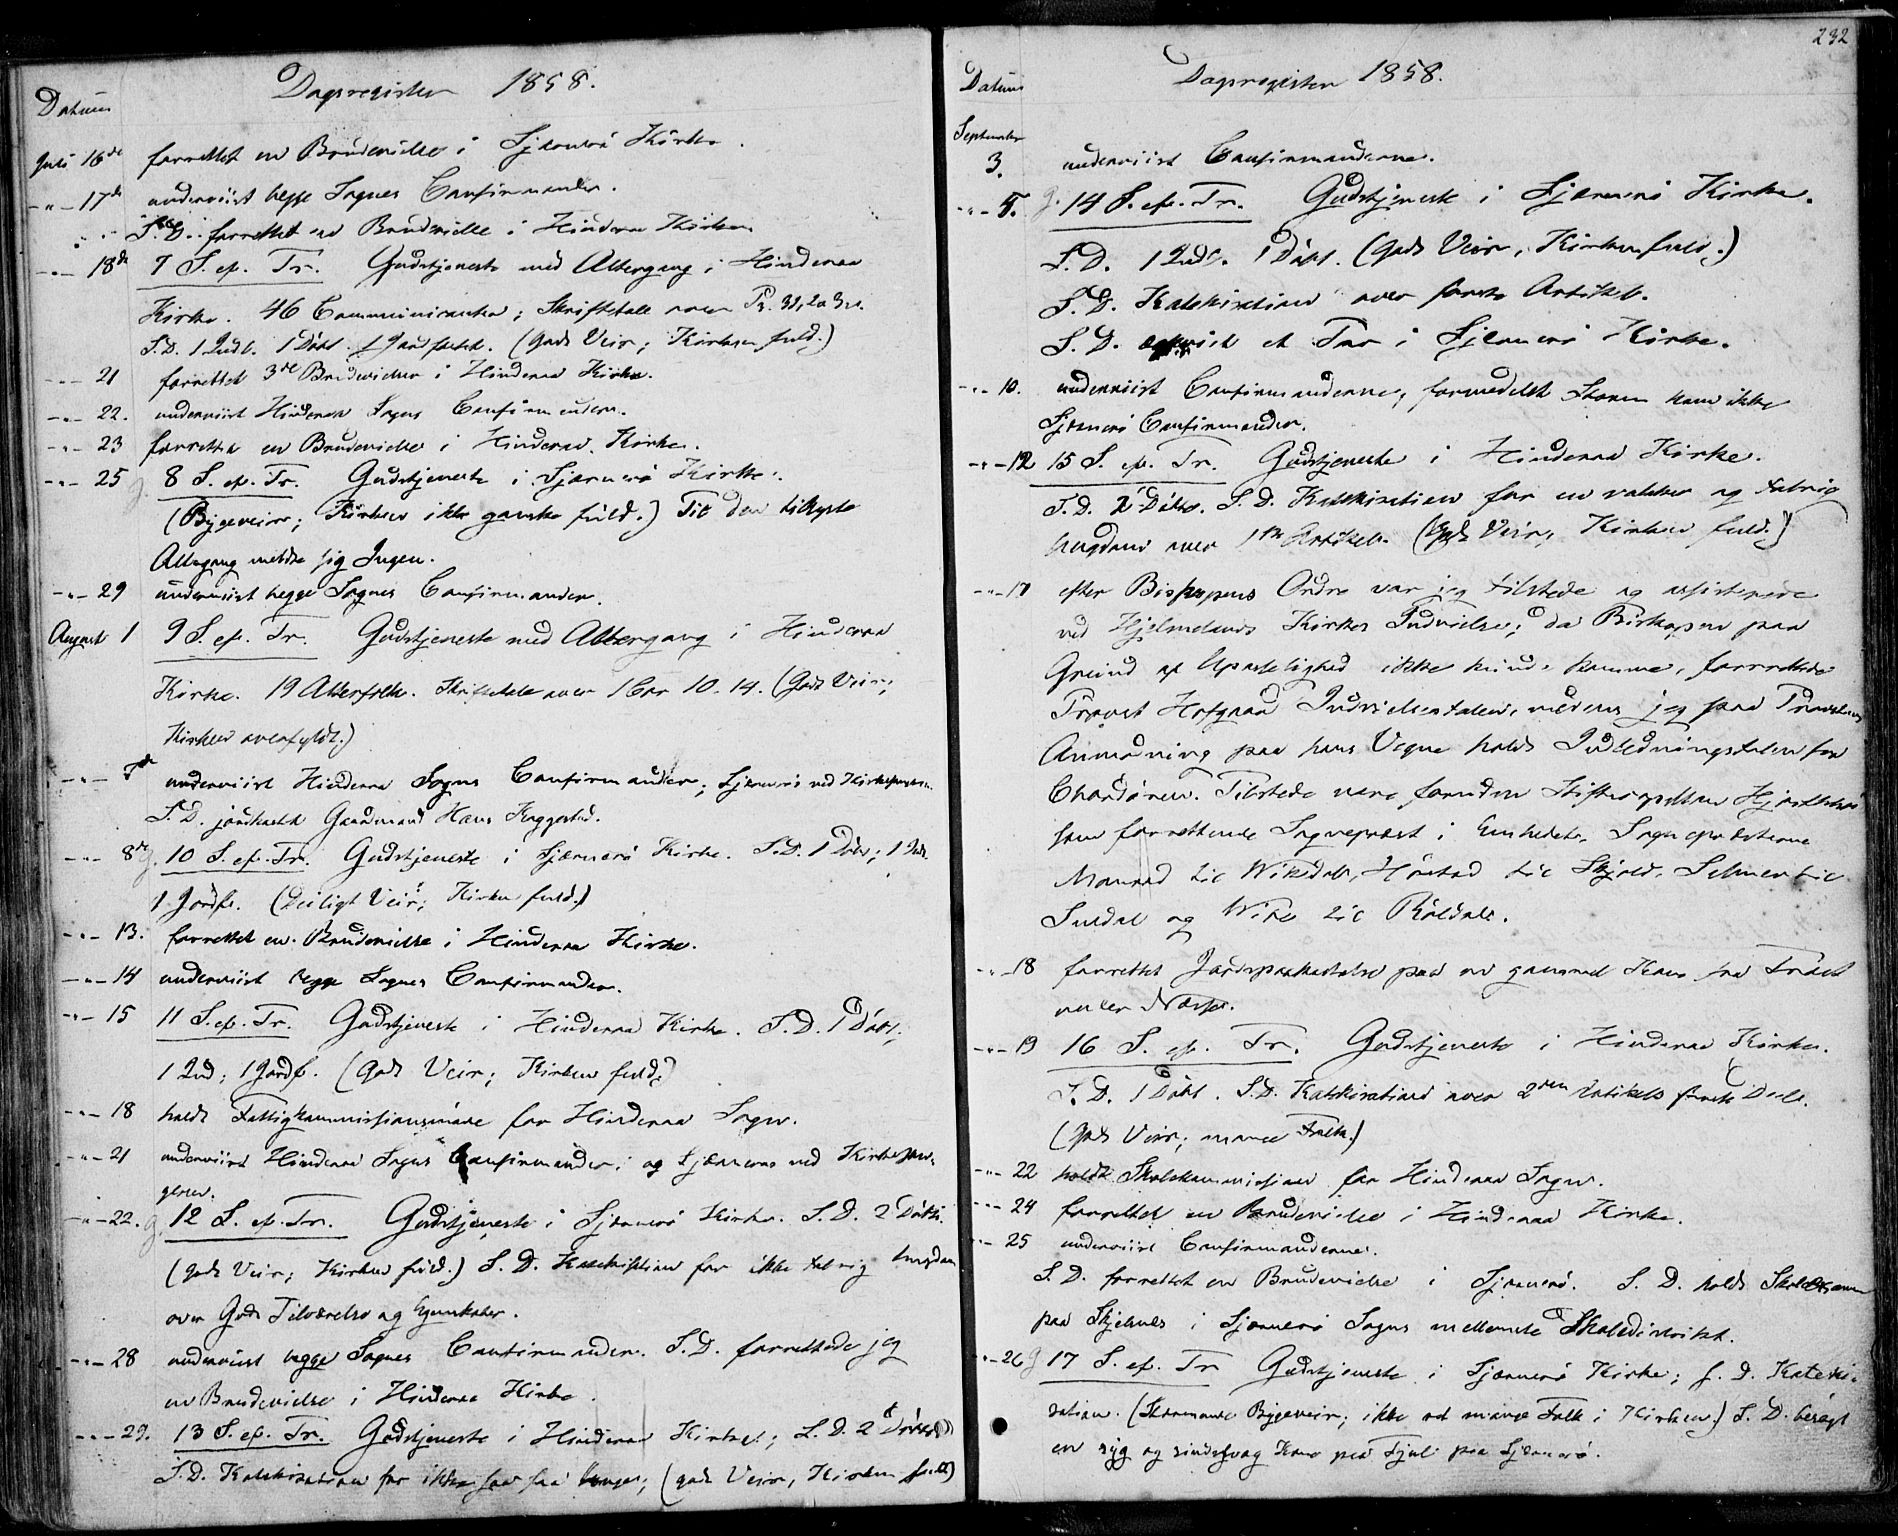 Dagsregister 1858.
Datum
Juli 16de forrettet en Brudevielse i Sjærnerø Kirke.
-"- 17de underviist begge Sognes Confirmander.
S. D. forrettet en Brudevielse i Hinderaa Kirke.
-"- 18de 7 S. ef. Tr. Gudstjeneste med Altergang i Hinderaa
Kirke. 46 Communicanter; Skriftetale over Ps. 32, 2 a 3 v.
S. D. 1 Indl. 1 Døbt. 1 Jordfæstet. (Godt Veir; Kirken fuld.)
-"- 21 forrettet 3de Brudevielser i Hinderaa Kirke.
-"- 22. underviist Hinderaa Sogns Confirmander.
-"- 23 forrettet en Brudevielse i Hinderaa Kirke.
-"- 25 g. 8 S. ef. Tr. Gudstjeneste i Sjærnerø Kirke.
(Bygeveir; Kirken ikke ganske fuld.) Til den tillyste
Altergang meldte sig Ingen.
-"- 29 underviist begge Sognes Confirmander.
August 1 9 S. ef. Tr. Gudstjeneste med Altergang i Hinderaa
Kirke. 19 Altersfolk. Skriftetale over 1 Cor 10. 14. (Godt Veir;
Kirken overfyldt.)
-"- 7de underviist Hinderaa Sogns Confirmander; Sjærnerøs ved Kirkesangeren.
S. D. jordfæstet Gaardmand Hans Haggestad.
-"- 8de g. 10 S. ef. Tr. Gudstjeneste i Sjærnerø Kirke. S. D. 1 Døbt; 1 Indl.
1 Jordf. (Deiligt Veir; Kirken fuld.)
-"- 13. forrettet en Brudevielse i Hinderaa Kirke.
-"- 14 underviist begge Sognes Confirmander.
-"- 15 11 S. ef. Tr. Gudstjeneste i Hinderaa Kirke. S. D. 1 Døbt;
1 Ind; 1 Jordf. (Godt Veir; Kirken fuld.)
-"- 18 holdt Fattigkommissionsmøde for Hinderaa Sogn.
-"- 21 underviist Hinderaa Sogns Confirmander; og Sjærnerøs ved Kirkesan-
geren.
-"- 22. g. 12 S. ef. Tr. Gudstjeneste i Sjærnerø Kirke. S. D. 2 Døbte.
(godt Veir; Kirken fuld.) S. D. Katekisation for ikke talrig Ungdom
over Guds Tilværelse og Egenskaber.
-"- 28 underviist begge Sognes Confirmander. S. D. forrettede jeg
en Brudevielse i Hinderaa Kirke.
-"- 29. 13 S. ef. Tr. Gudstjeneste i Hinderaa Kirke; S. D. 2 Døbte
S. D. Katekisation for ikke saa faa Unge; (godt Veir, Kirken fuld)
232
Dagsregister 1858.
Datum
September
3. underviist Confirmanderne.
-"- 5. g. 14 S. ef. Tr. Gudstjeneste i Sjærnerø Kirke.
S. D. 1 Indl. 1 Døbt. (Godt Veir, Kirken fuld.)
S. D. Katekisation over første Artikel.
S. D. et Par i Sjærnerø Kirke.
-"- 10. underviist Confirmanderne, formedelst Storm kom ikke
Sjærnerø Confirmander.
-"- 12 15 S. ef. Tr. Gudstjeneste i Hinderaa Kirke.
S. D. 2 Døbte. S. D. Katekisation for en vakker og talrig
Ungdom over 1ste Artikel. (Godt Veir; Kirken fuld.)
-"- 17 efter Bispens Ordre var jeg tilstede og assisterede
ved Hjelmelands Kirkes Indvielse; da Biskopen paa
Grund af Upasselighed ikke kunde komme, forrettede
Provst Hofgaard Indvielsestalen, medens jeg paa Provstens
Anmodning paa hans Vegne holdt Indledningstalen fra
Chordøren. Tilstede vare foruden Stiftscapellan Hjorthøi
som forrettende Sognepræst i Embedet, Sognepræsterne
Monrad til Wikedal, Hørstad til Skjold, Selmer til
Suldal og Wike til Røldal.
-"- 18 forrettet Jordspaakastelse paa en gammel Kone fra
under Næsse.
-"- 19 16 S. ef. Tr. Gudstjeneste i Hinderaa Kirke.
S. D. 1 Døbt. S. D. Katekisation over 2den Artikels første Deel.
(Godt Veir; mange Folk.)
-"- 22 holdt Skolekommission for Hinderaa Sogn.
-"- 24 forrettet en Brudevielse i Hinderaa Kirke.
-"- 25 underviist Confirmanderne.
S. D. forrettet en Brudevielse i Sjærnerø. S. D. holdt Skoleexamen
paa Skjelnes i Sjærnerø Sogns mellemste Skoledistrikt.
-"- 26 g 17 S. ef. Tr Gudstjeneste i Sjærnerø Kirke; S. D. Kateki-
sation. (Stormende Bygeveir; ikke ret mange Folk i Kirken.) S. D. besøgt
en syg og sindssvag Kone paa paa Sjærnerø.